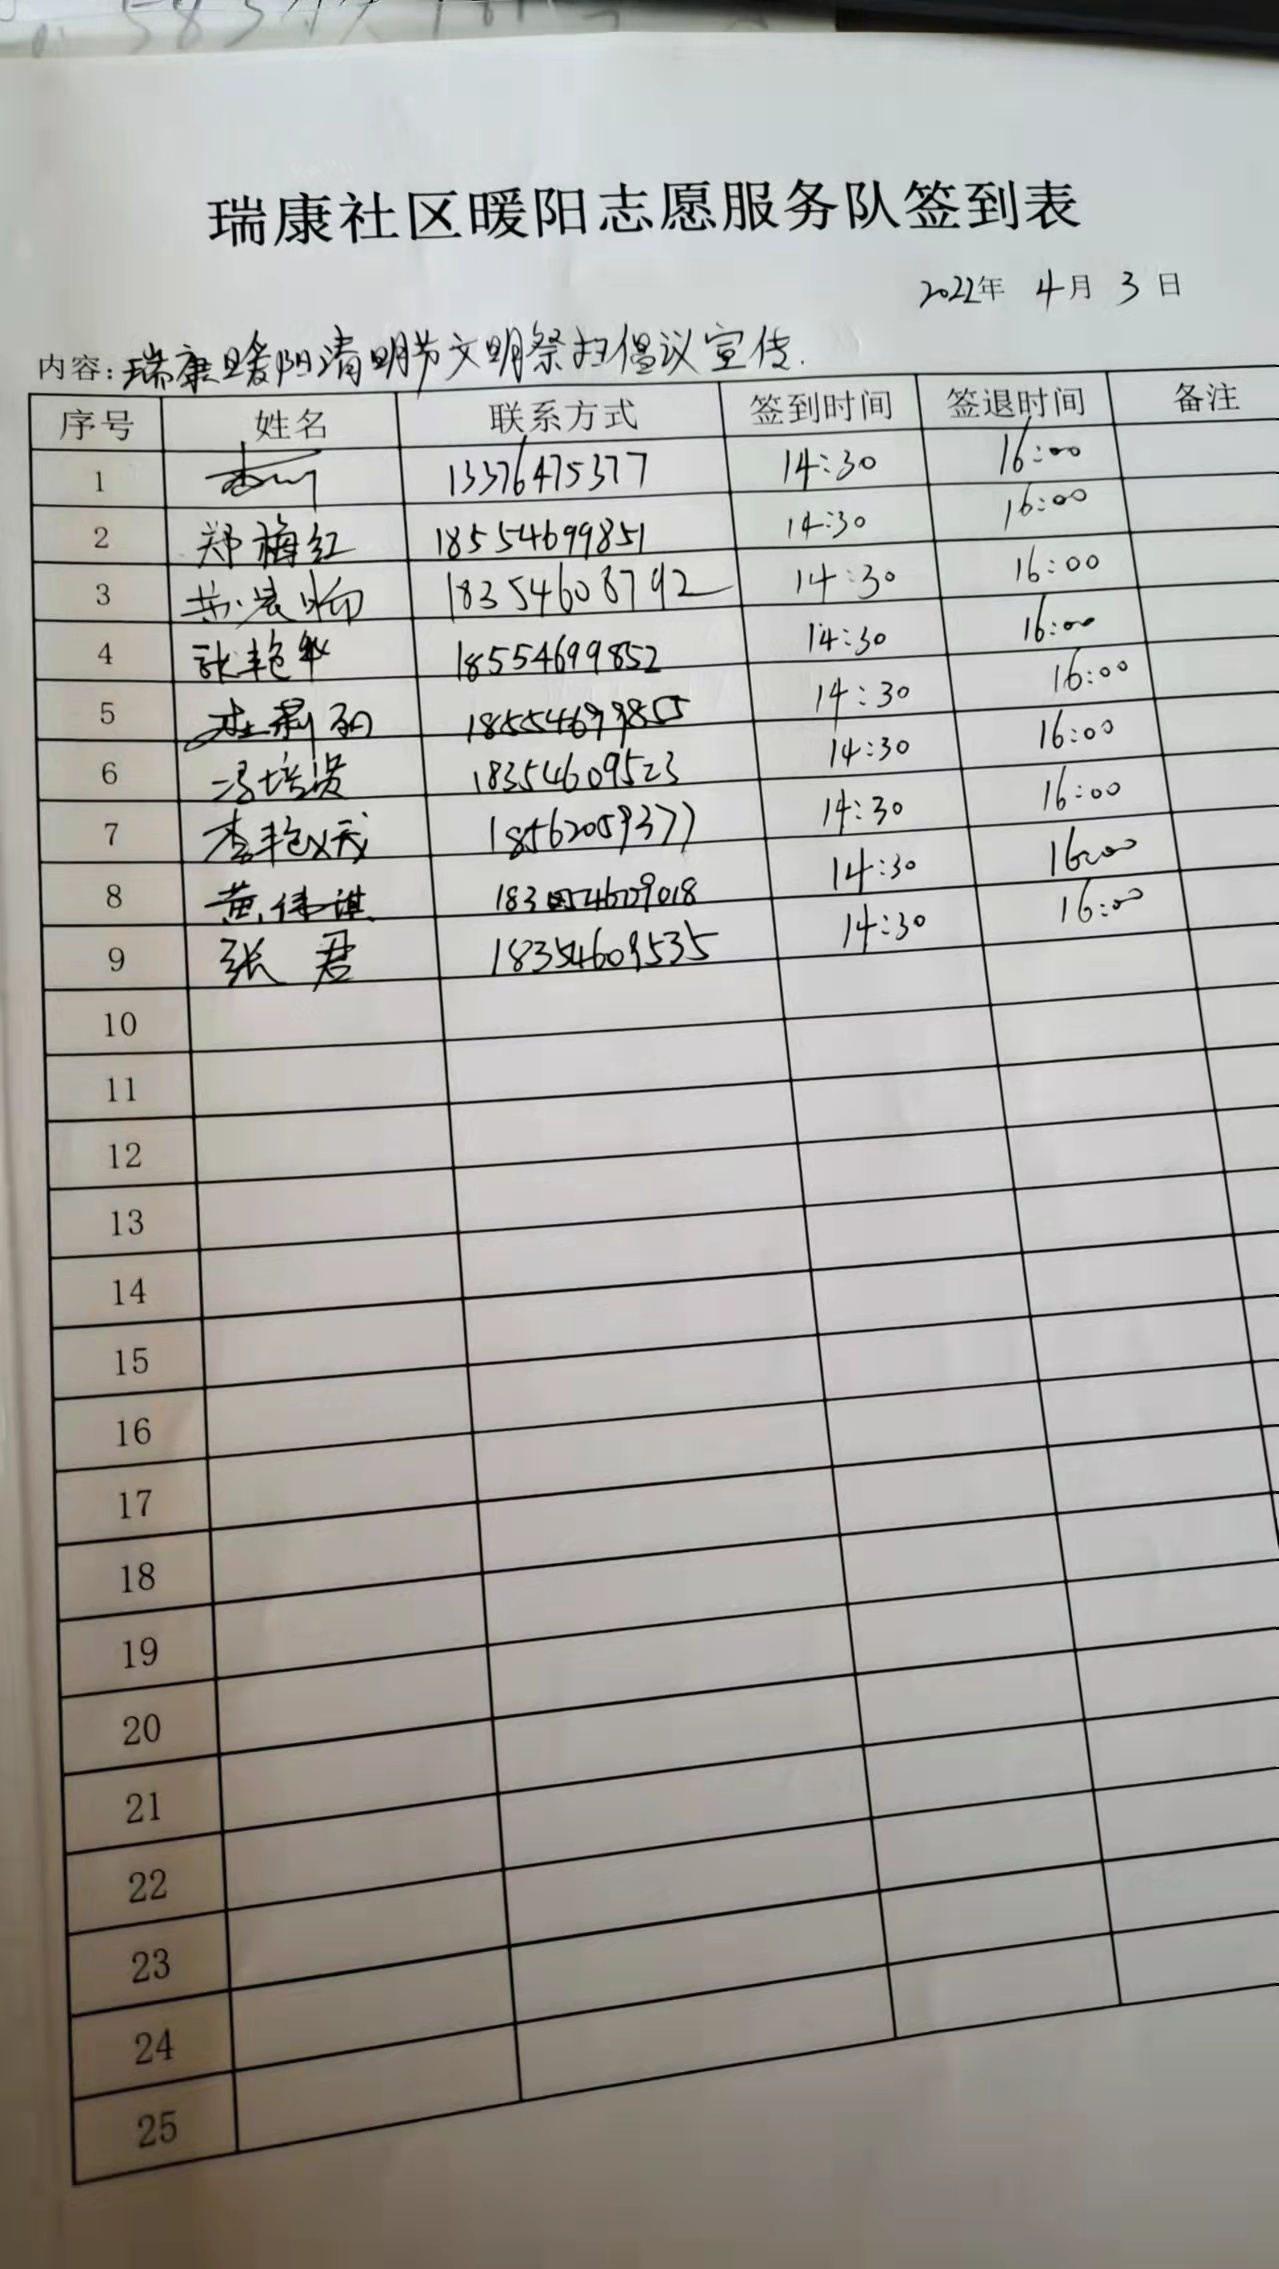 瑞康社区暖阳志愿服务队签到表
2022年 4月 3日
内容：瑞康暖阳清明节文明祭扫倡议宣传.
序号 姓名 联系方式 签到时间 签退时间 备注
1 13376475377 14:30 16:00
2 郑梅红 18554699851 14:30 16:00
3 18354608792 14:30 16:00
4 张艳华 18554699852 14:30 16:00
5 杜莉丽 18554699855 14:30 16:00
6 冯培贤 18354609523 14:30 16:00
7 李艳茂 18562059377 14:30 16:00
8 黄伟谋 14:30 16:00
9 张君 18354609535 14:30 16:00
10
11
12
13
14
15
16
17
18
19
20
21
22
23
24
25